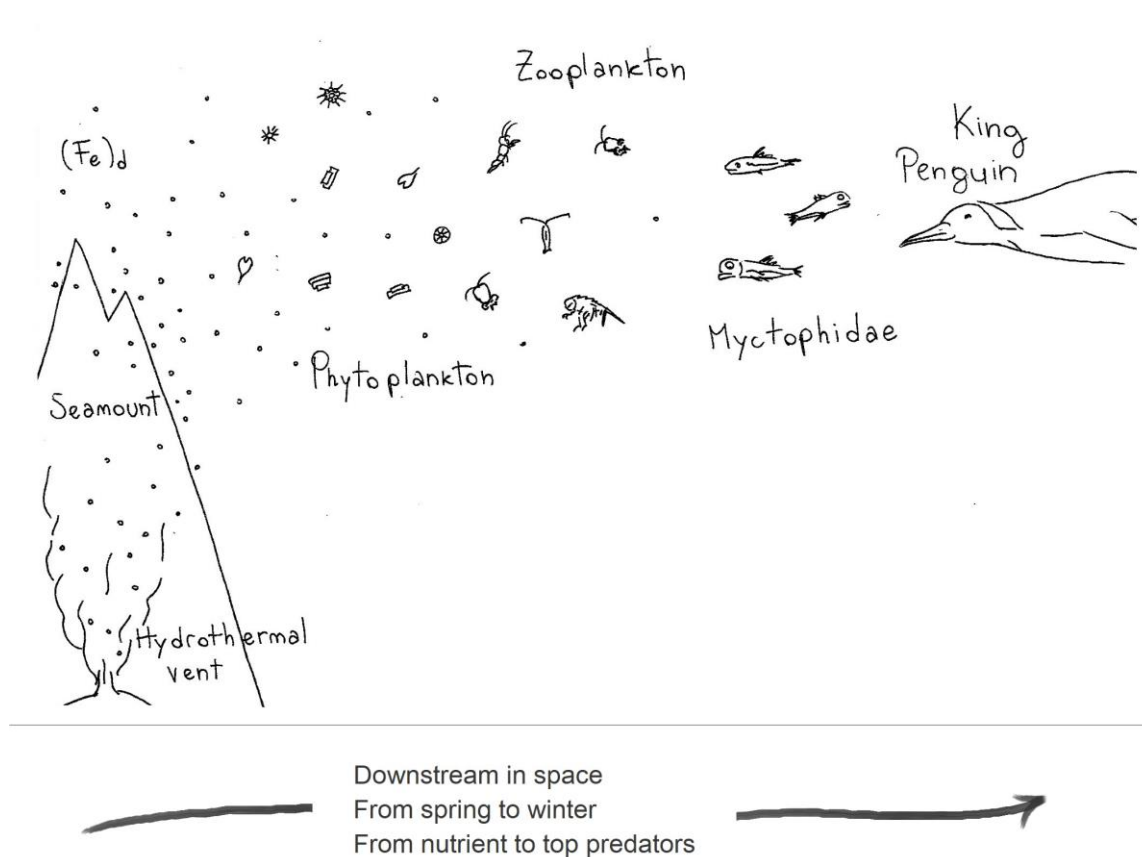 Zooplankton
King
Penguin
(Fe)d
Myctophidae
Phytoplankton
Seamount
Hydrothermal
vent
Downstream in space
From spring to winter
From nutrient to top predators